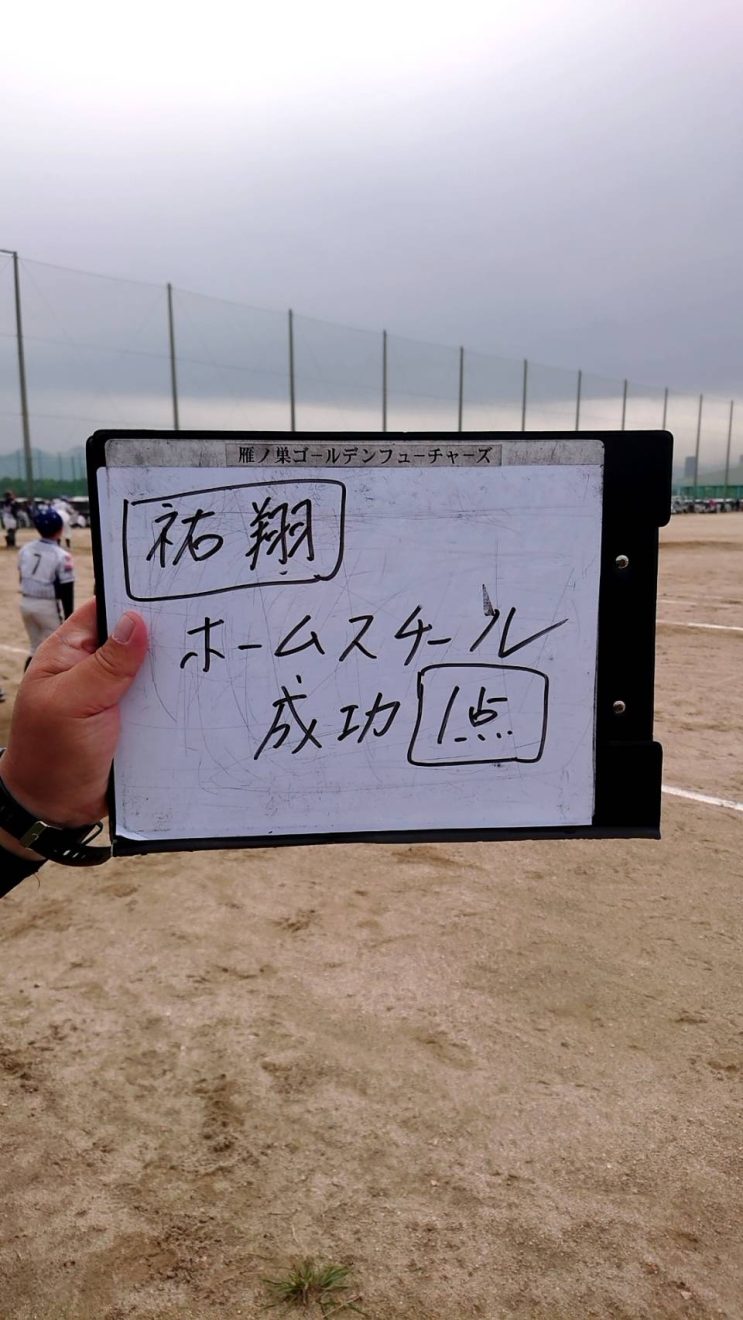 雁ノ巣ゴールデンフューチャーズ
祐翔
ホームスチール
成功 1点
7